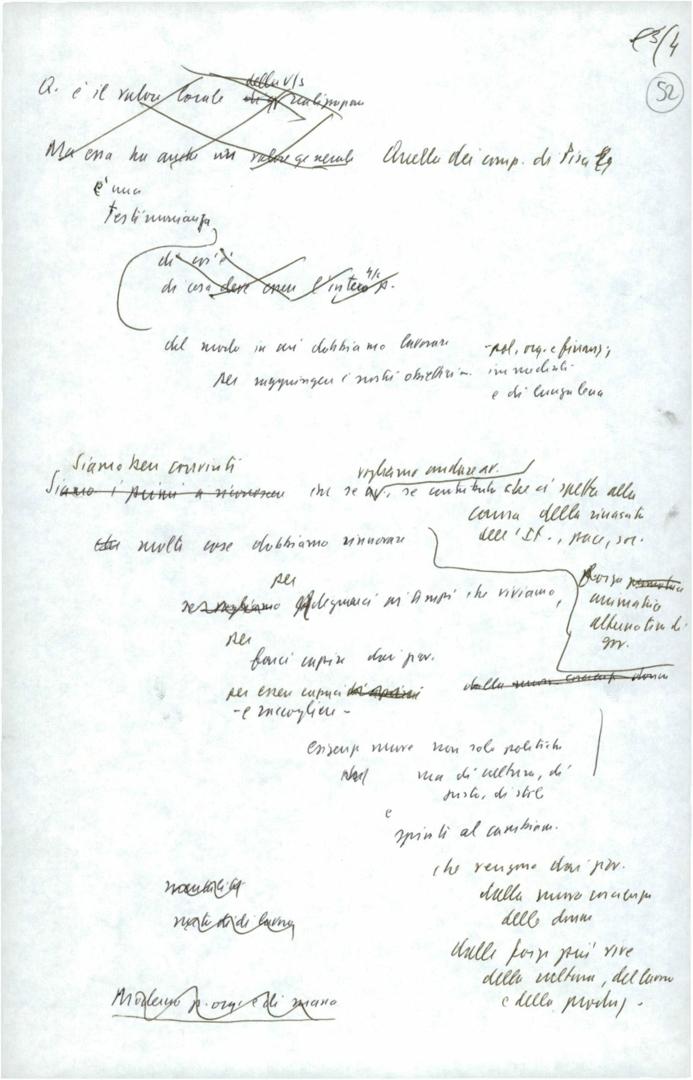 3/4
52
della v/s
Q. è il valore locale realizzazione
Ma essa ha anche un valore generale Quella dei comp. di Pisa
è una
testimonianza
di cos'è
di cosa deve essere l'intero p.
del modo in cui dobbiamo lavorare - pol., org. e finanz;
per raggiungere i nostri obiettivi. immediati
e di lunga lena
Siamo ben convinti vogliamo andare av.
Siamo i primi a riconoscere che se av. se contributo che ci spetta alla
causa della rinascita
dell'It., pace, soc.
molte cose dobbiamo rinnovare
per
se vogliamo adeguarci ai tempi che viviamo,
forza
animatrice
alternativa di
gov.
per
farci capire dai giov.
per essere capaci di
dalla nuova coscienza donne
- e raccogliere -
esigenze nuove non solo politiche
ma di cultura, di
gusto, di stile
e
spinti al cambiam.
che vengono dai giov.
dalla nuova coscienza
delle donne
mentalità
metodi di lavoro
dalle forze più vive
della cultura, del lavoro
e della produz.
Moderno p. org. e di massa